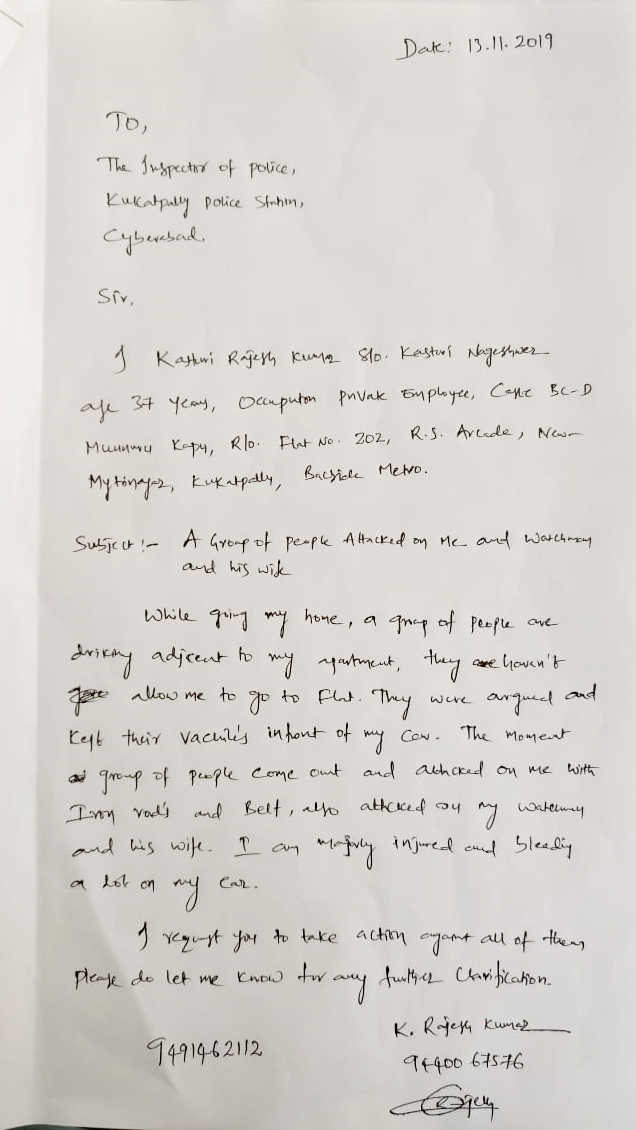 Date: 13.11.2019
To,
The Inspector of police,
Kukatpally Police Station,
Cyberabad.
Sir,
I Kasturi Rajesh Kumar S/o. Kasturi Nageshwer
age 37 years, Occuputon private Employee, Caste BC-D
Munnuru Kapu, R/o. Flat No. 202, R.S. Arcade, New
Mytrinagar, Kukatpally, Bacside Metro.
Subject :- A Group of people Attacked on Me and Watchman
and his wife
While going my home, a group of people are
drinking adjcent to my apartment, they haven't
allow me to go to Flat. They were argued and
Kept their vachile's infront of my Car. The moment
group of people come out and attacked on me with
Iron rod's and Belt, also attcked on my watchmen
and his wife. I am majorly injured and bleedig
a lot on my Car.
I request you to take action against all of them
please do let me know for any further Clarification.
K. Rajesh Kumar
9491462112
94400 67576